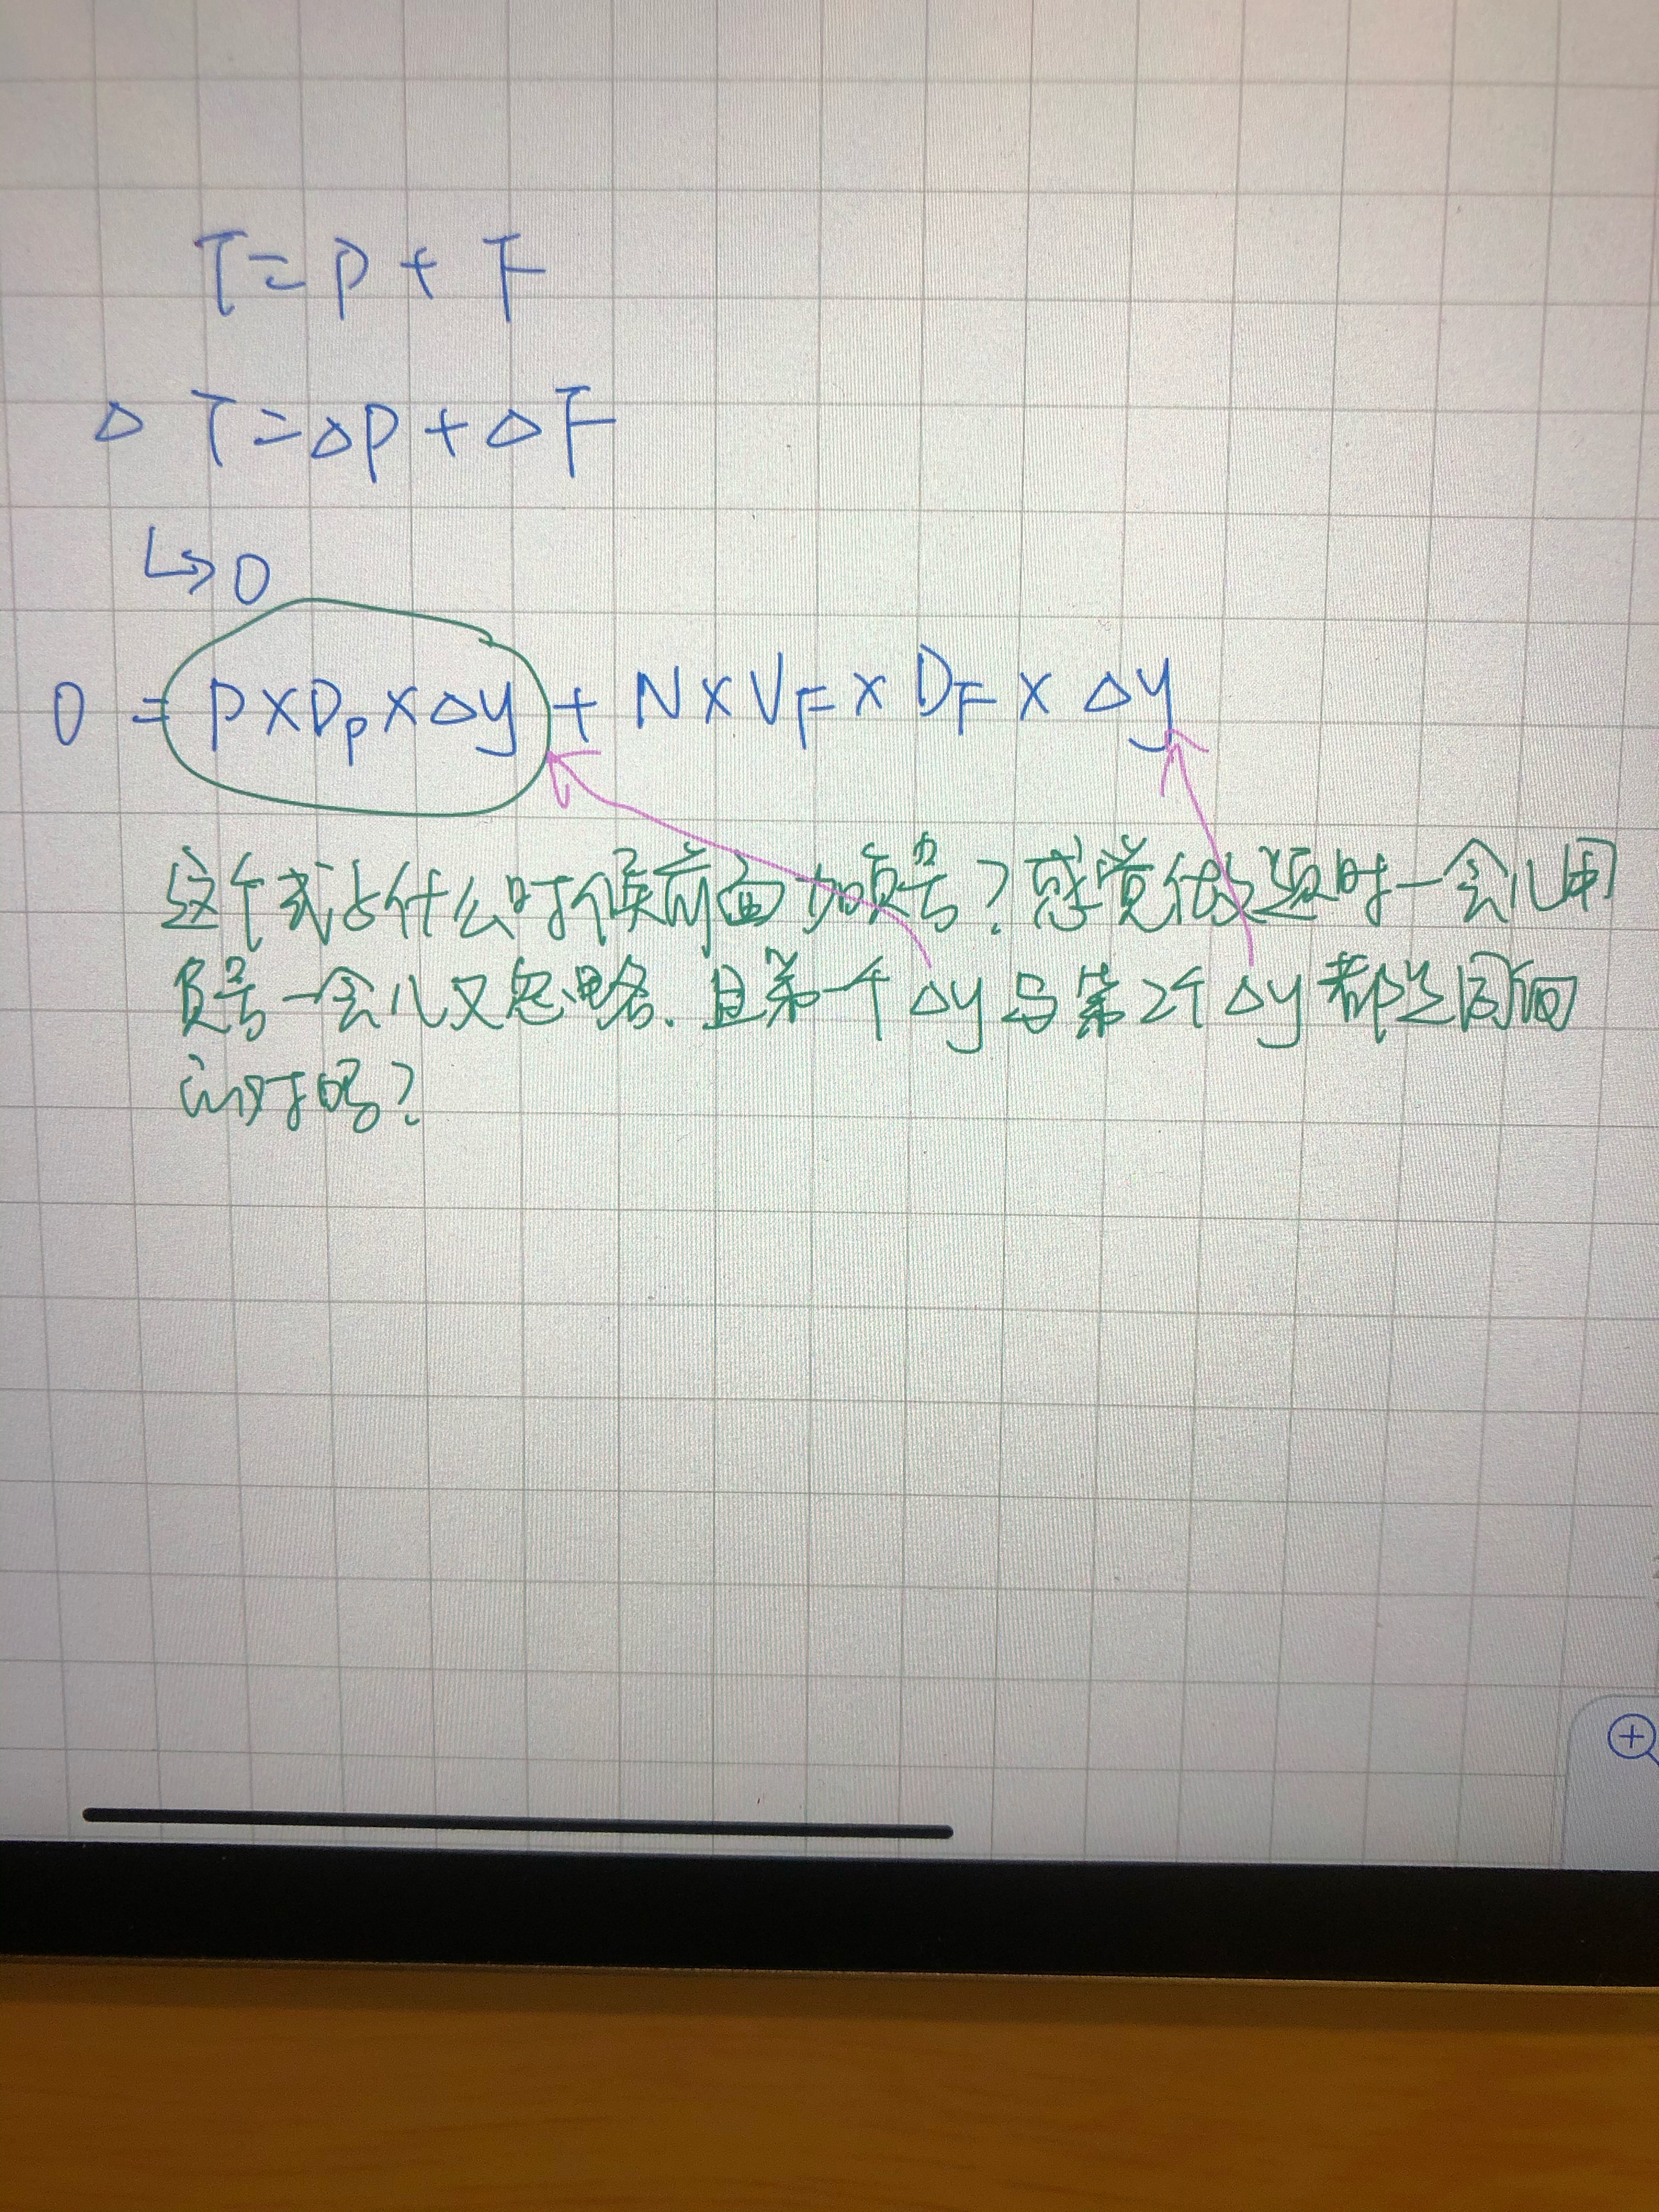 T=P+F
△T=△P+△F
↳0
0=P×Dₚ×△y+N×V_F×D_F×△y
这个式子什么时候前面加负号?感觉做题时一会儿用
负号一会儿又忽略.且第一个△y与第2个△y都是同向
的对吗?